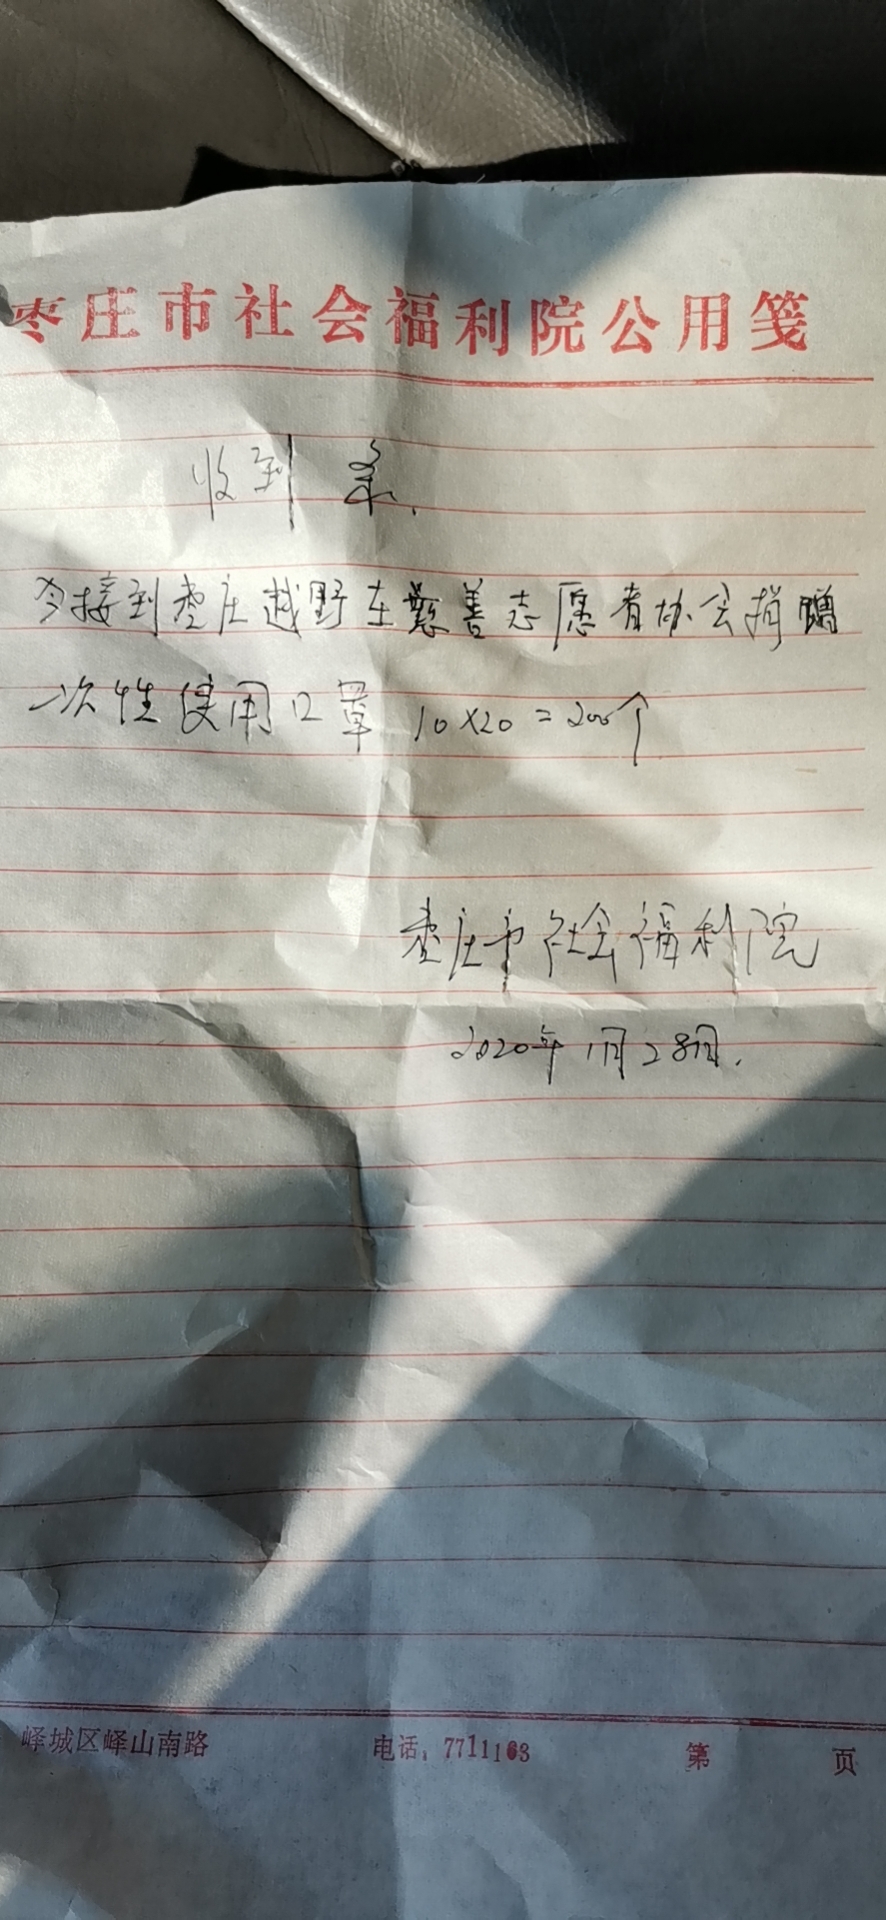 枣庄市社会福利院公用笺
收到条.
今接到枣庄越野车慈善志愿者协会捐赠
一次性使用口罩 10×20=200个
枣庄市社会福利院
2020年1月28日.
峄城区峄山南路 电话:7711163 第 页